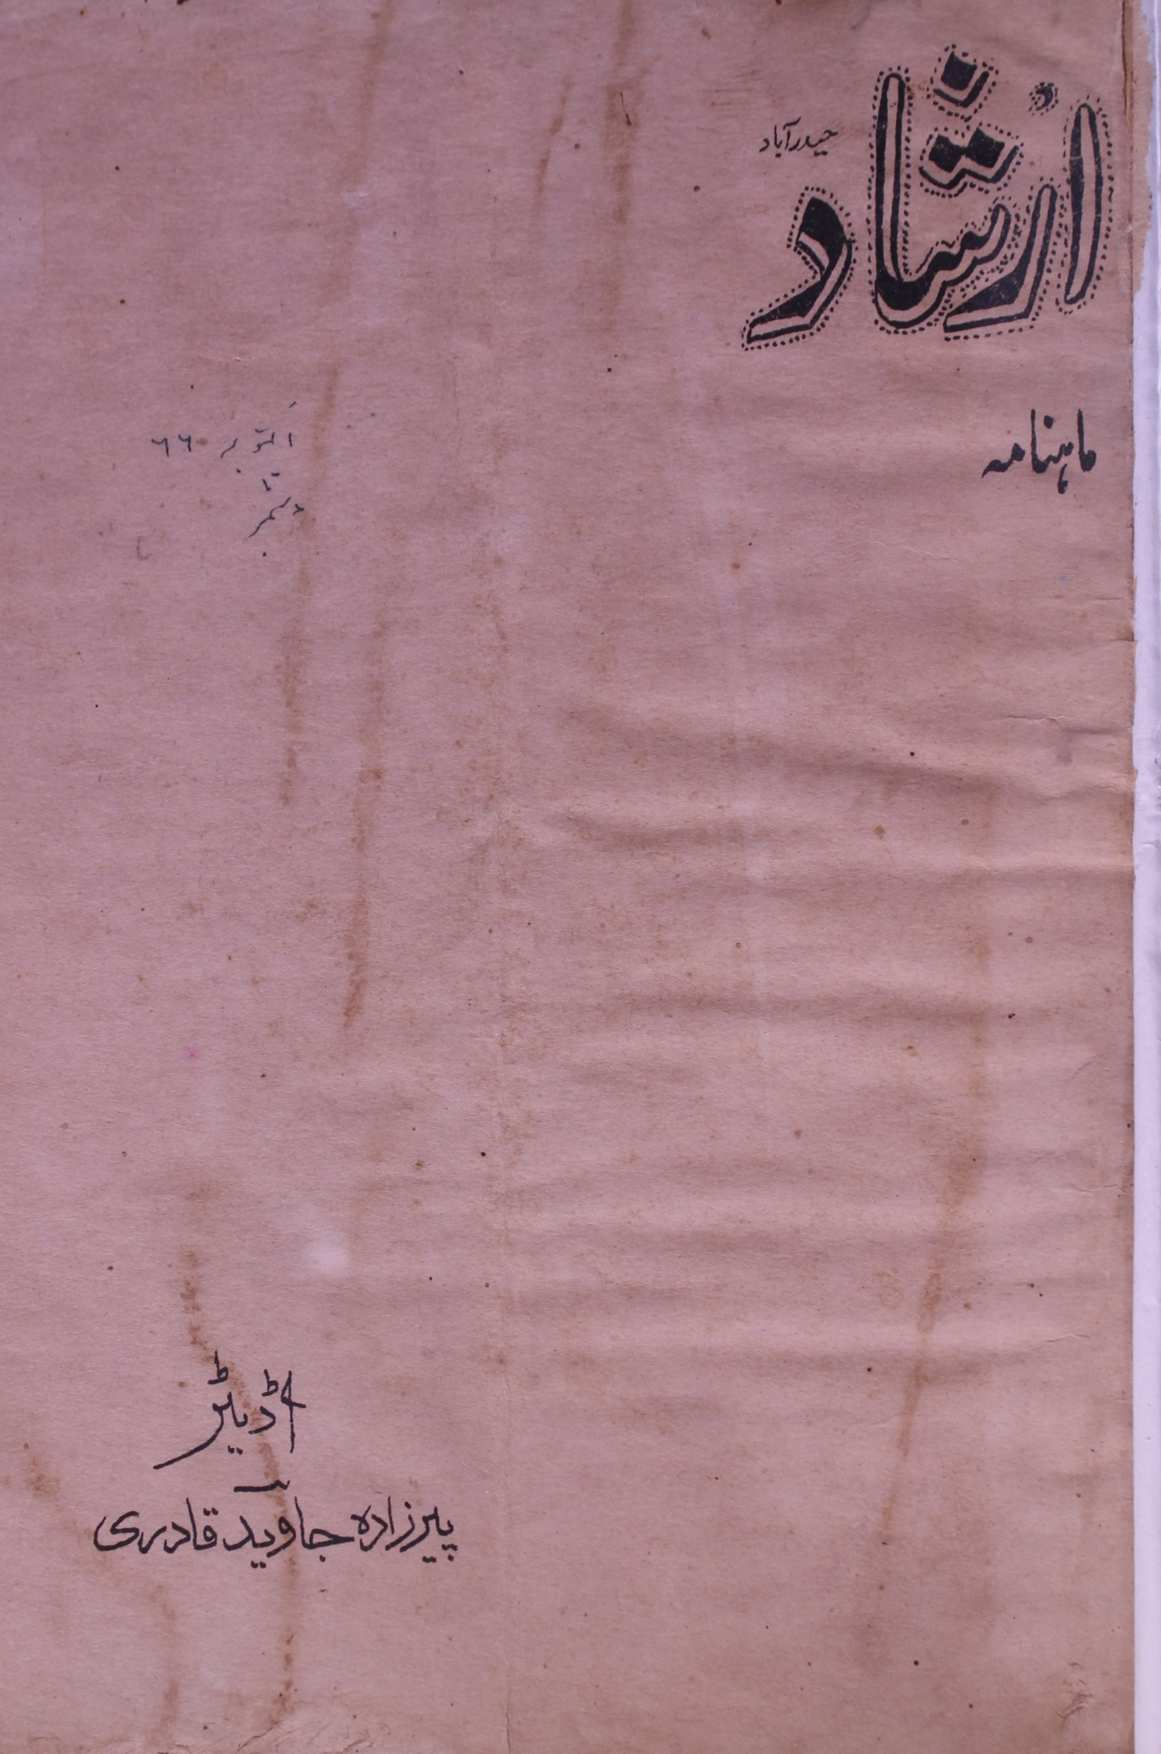 ارشاد
حیدرآباد
ماہنامہ
اکتوبر ۶۶
تا
دسمبر
اڈیٹر
پیرزادہ جاوید قادری